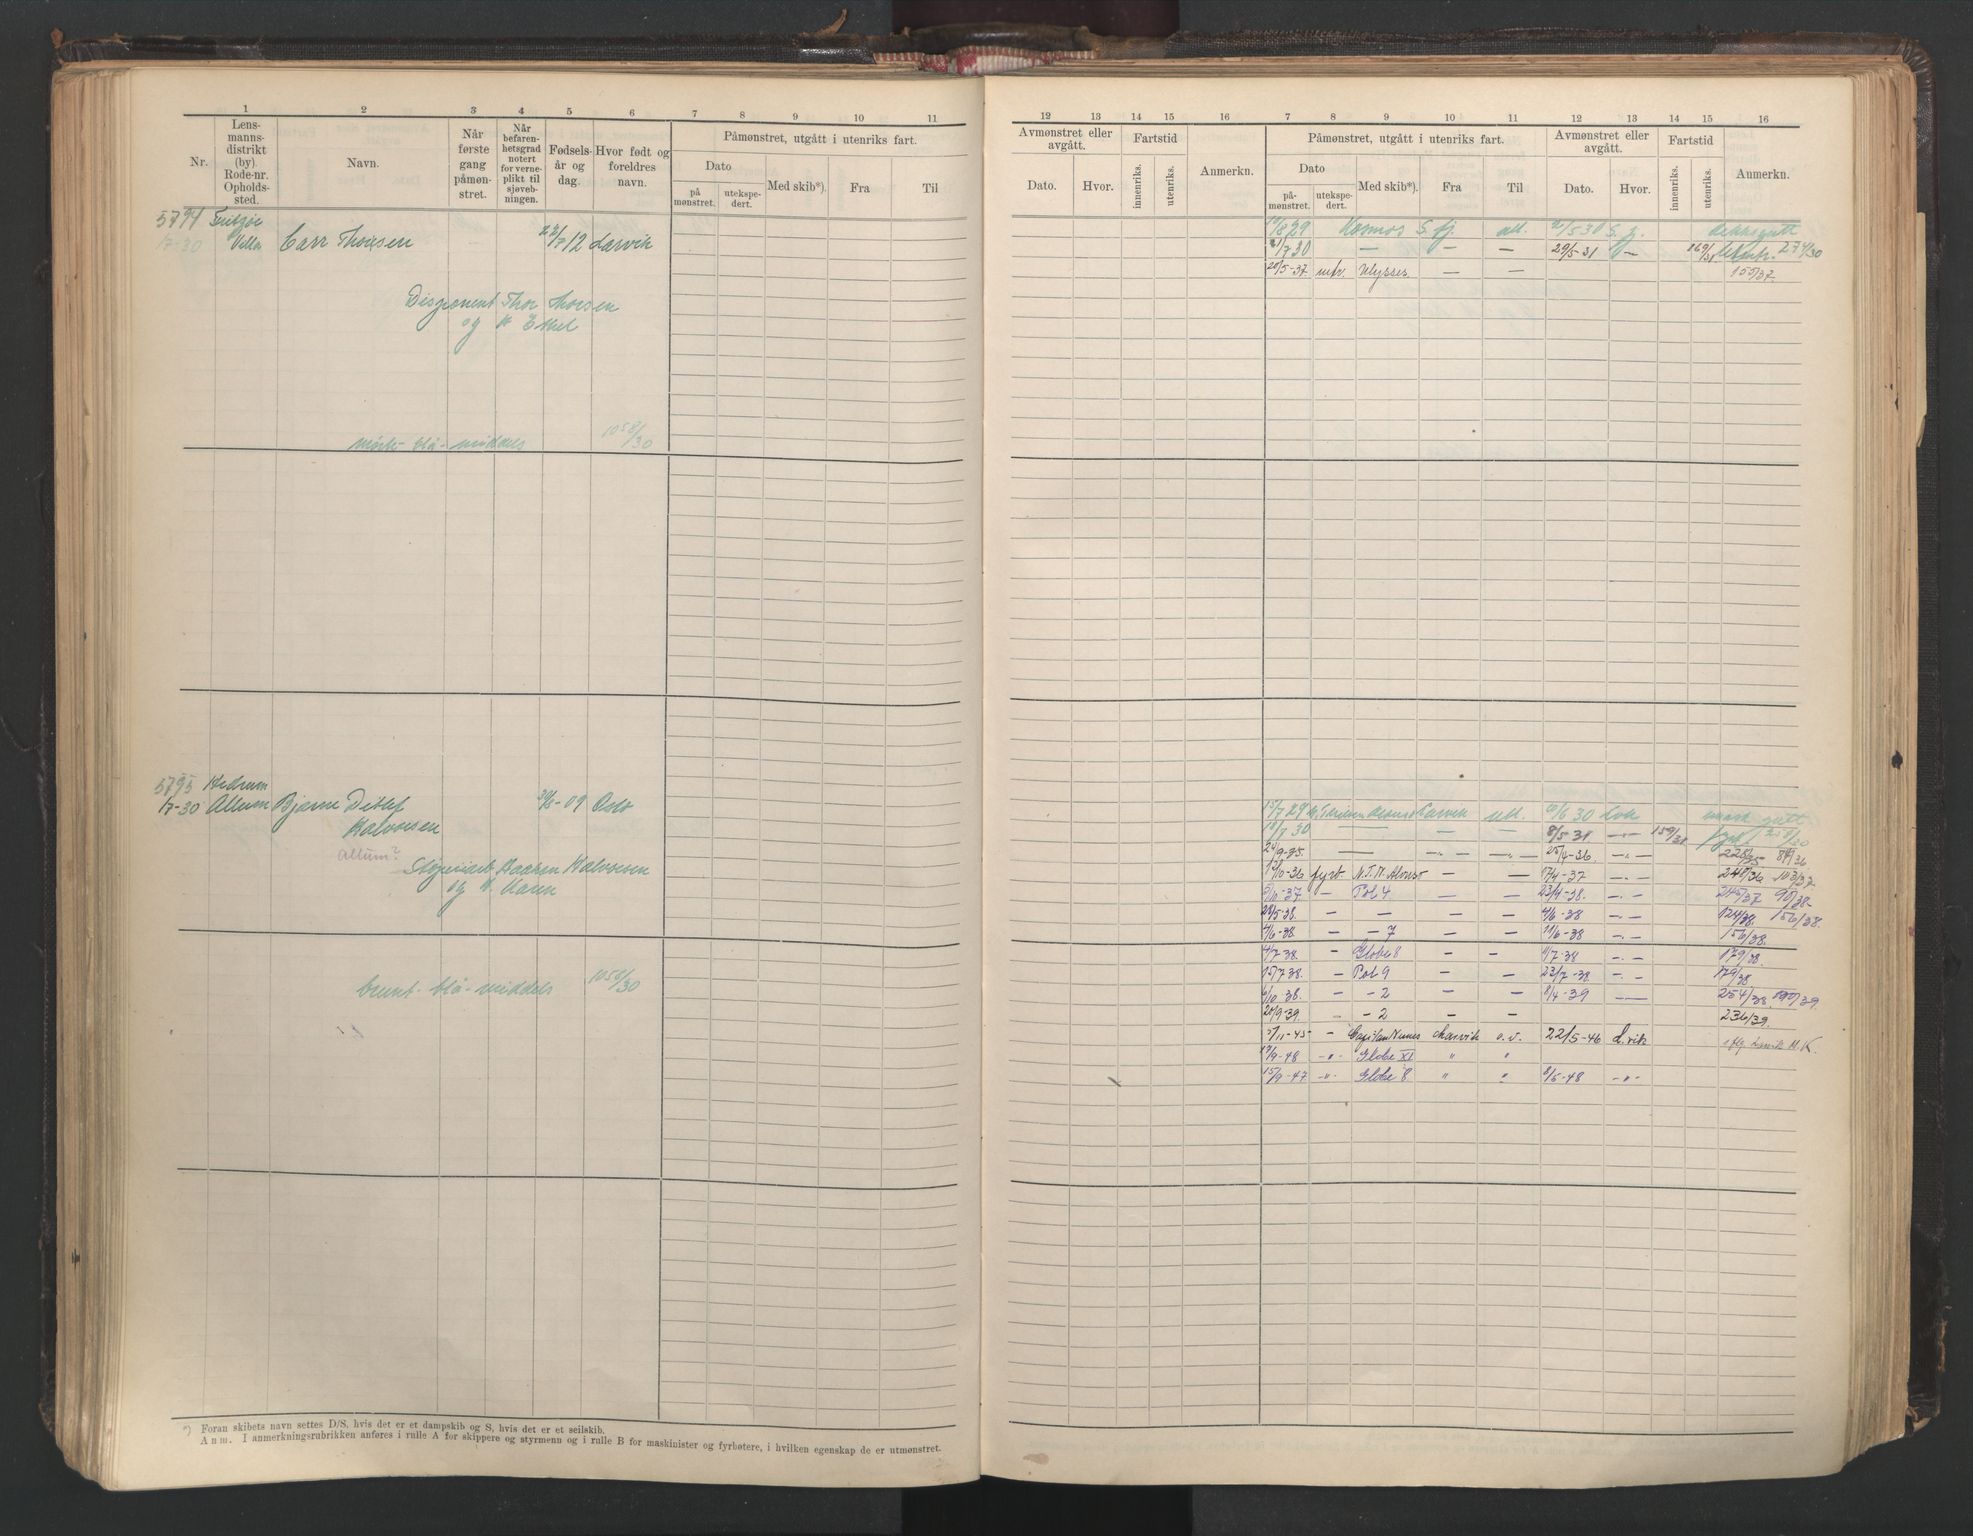 1 2 3 4 5 6 7 8 9 10 11
Nr. Lensmannsdistrikt (by). Rode-nr. Opholdssted. Navn. Når første gang påmønstret. Når befarenhetsgrad notert for verneplikt til sjøvebningen. Fødselsår og dag. Hvor født og foreldres navn. Påmønstret, utgått i utenriks fart.
Dato
på mønstret. utekspedert. Med skib*). Fra Til
5794
7-30 Villa Carr Thorsen 22/7 12 Larvik
Disponent Thor Thorsen
og h Ethel
mörk- blå- middels 1058/30
5795 Hedrum
1/7-30 Allum Bjarne Ditlef 30/6-09 Oslo
Halvorsen
Allum?
Haaken Halvorsen
og h. Karen
brunt- blå- middels 1058/30
*) Foran skibets navn settes D/S, hvis det er et dampskib og S, hvis det er et seilskib.
Anm. I anmerkningsrubrikken anføres i rulle A for skippere og styrmenn og i rulle B for maskinister og fyrbøtere, i hvilken egenskap de er utmønstret.
12 13 14 15 16 7 8 9 10 11 12 13 14 15 16
Avmønstret eller avgått. Fartstid Anmerkn. Påmønstret, utgått i utenriks fart. Avmønstret eller avgått. Fartstid Anmerkn.
Dato. Hvor. innenriks. utenriks. Dato Dato. Hvor. innenriks. utenriks.
påmønstret. utekspedert. Med skib*). Fra Til
19/8 29 Kosmos S. fj. utl. 21/5 30 S. fj. dekksgutt
21/7 30 — — — 29/5-31 — 169/31 274/30
20/5-37. Ulysses — — 155/37.
15/7 29 Larvik utl. 10/6 30 Lvk gutt
18/7 30 — — — 8/5-31 —"— 159/31 258/30
24/9-35. — —"— —"— 25/4-36. —"— 228/35 84/36
12/10-36 fyrb N.T.N. Alonso — — 17/4-37 —"— 248/36 103/37.
5/10-37 — Pol 4 — — 23/4-38. —"— 245/37 90/38-
28/5-38. — — — — 4/6-38 —"— 124/38. 156/38.
4/6-38. — — 7 — — 11/6-38 —"— 156/38.
4/7-38. — Globe 8 — — 11/7-38 —"— 179/38.
15/7 38. — Pol 9 — — 23/7-38 —"— 179/38
6/10 38. — — 2 — — 8/4-39 —"— 254/38 190/39.
20/9-39. — — 2 — — 236/39.
5/11-45- — Capitan Nunes Larvik o.v. 22/5-46 L.vik iflg Larvik M.K.
17/9-48 —"— Globe XI " "
15/9-47 —"— Globe 8 " " 8/5-48 —"—